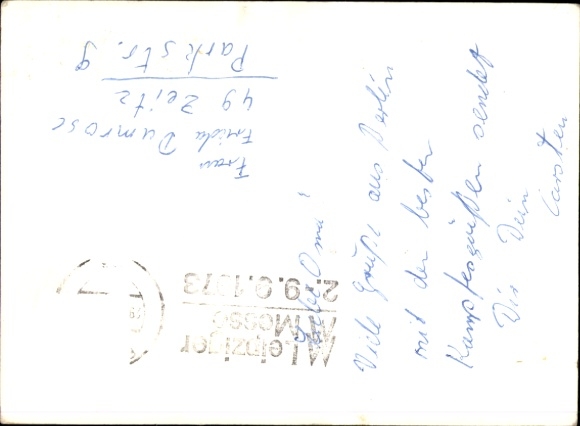 Liebe Omi!
Viele Grüße aus Berlin
mit den besten
Kampfesgrüßen sendet
Dir Dein
Carsten
Frau
Frida Dumrose
49 Zeitz
Parkstr. 9
Leipziger
Messe
2.-9.9.1973